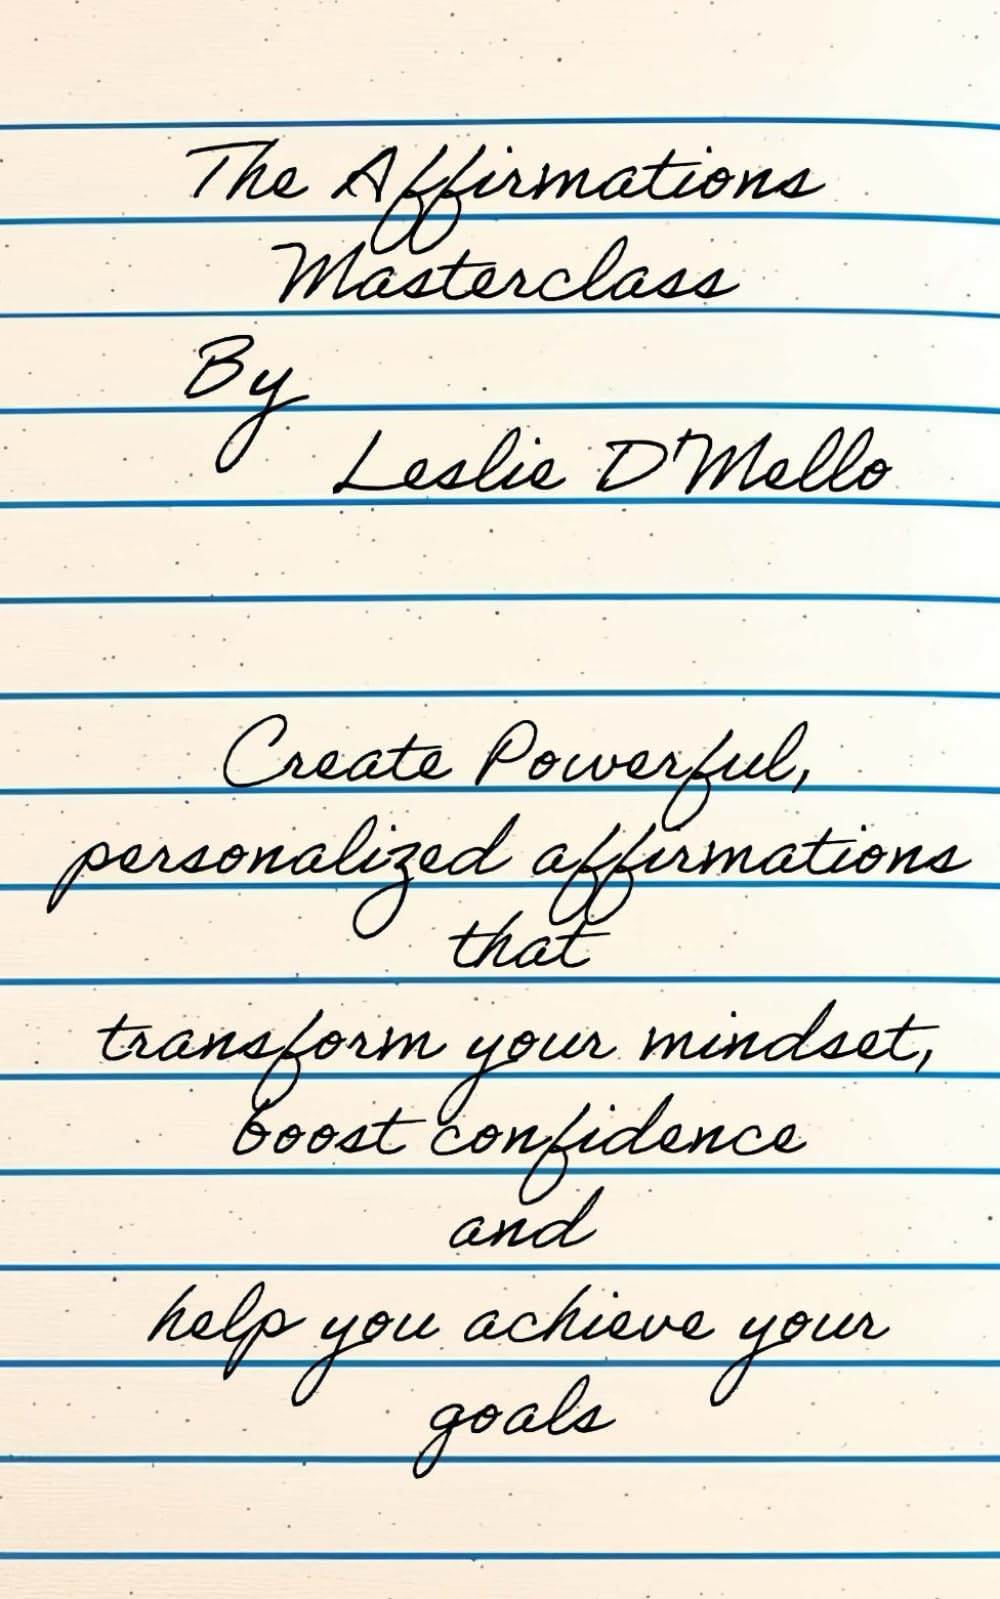 The Affirmations
Masterclass
By
Leslie D'Mello
Create Powerful,
personalized affirmations
that
transform your mindset,
boost confidence
and
help you achieve your
goals